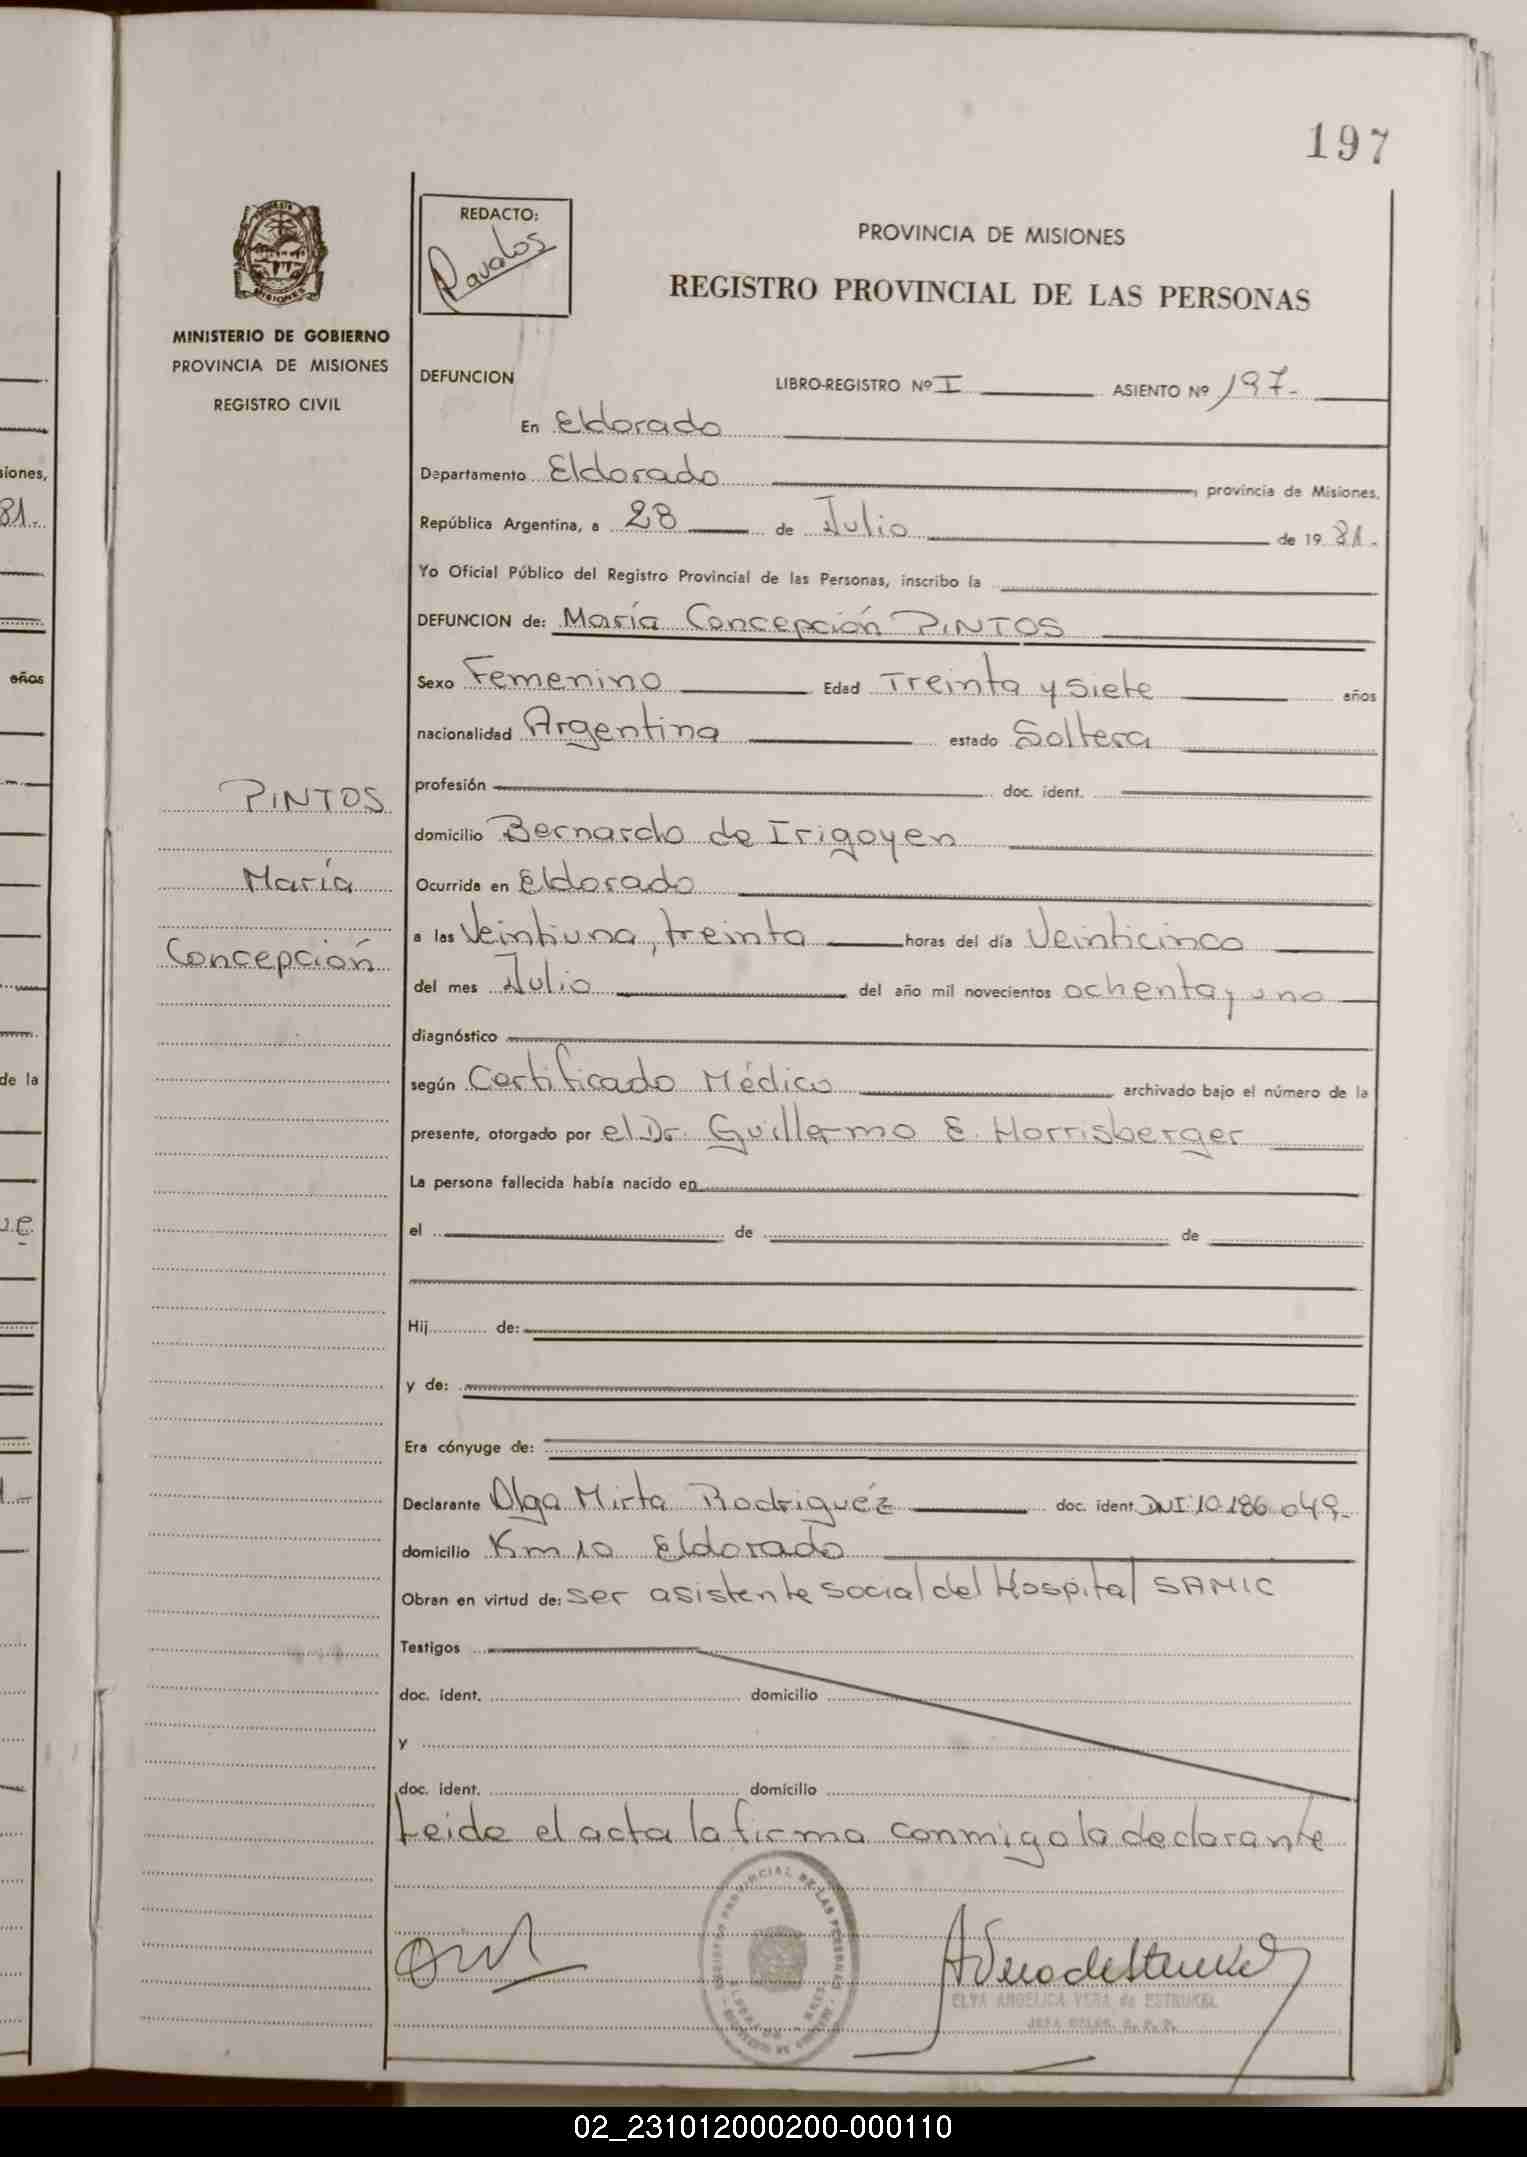 197
REDACTO:
Ravalos
PROVINCIA DE MISIONES
REGISTRO PROVINCIAL DE LAS PERSONAS
MISIONES
MINISTERIO DE GOBIERNO
PROVINCIA DE MISIONES
REGISTRO CIVIL
DEFUNCION LIBRO-REGISTRO Nº I ASIENTO Nº 197.-
En Eldorado
Departamento Eldorado, provincia de Misiones,
República Argentina, a 28 de Julio de 19 81.-
Yo Oficial Público del Registro Provincial de las Personas, inscribo la
DEFUNCION de: María Concepción PINTOS
Sexo Femenino Edad Treinta y siete años
nacionalidad Argentina estado Soltera
profesión doc. ident.
domicilio Bernardo de Irigoyen
Ocurrida en Eldorado
a las Veintiuna, treinta horas del día Veinticinco
del mes Julio del año mil novecientos ochenta y uno
diagnóstico
según Certificado Médico archivado bajo el número de la
presente, otorgado por el Dr. Guillermo E. Horrisberger
La persona fallecida había nacido en
el de de
Hij de:
y de:
Era cónyuge de:
Declarante Olga Mirta Rodriguéz doc. ident. DNI:10.186.049.-
domicilio Km 10 Eldorado
Obran en virtud de: ser asistente social del Hospital SAMIC
Testigos
doc. ident. domicilio
y
doc. ident. domicilio
Leida el acta la firma conmigo la declarante
PINTOS
María
Concepción
ELVA ANGELICA VERA de ESTRUKEL
siones,
81.
años
de la
02_231012000200-000110